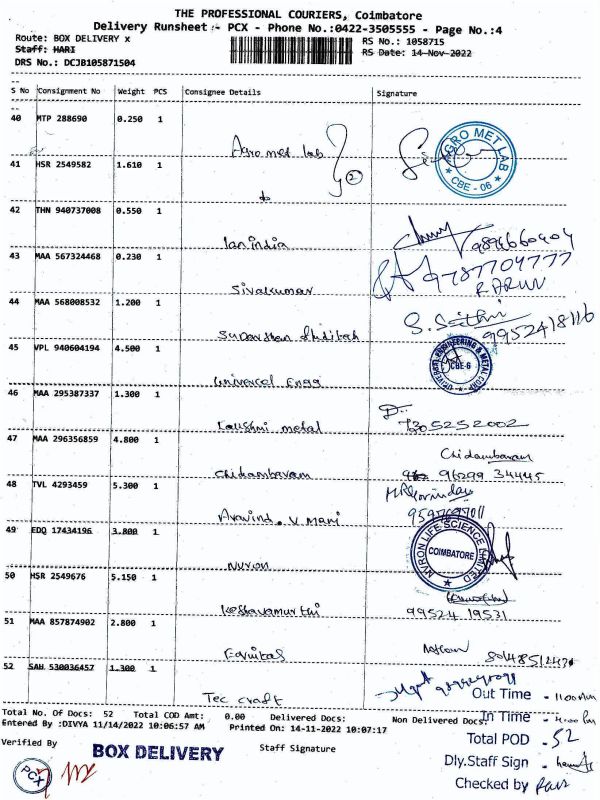 THE PROFESSIONAL COURIERS, Coimbatore
Delivery Runsheet - PCX - Phone No.:0422-3505555 - Page No.:4
Route: BOX DELIVERY x
RS No.: 1058715
Staff: HARI
RS Date: 14-Nov-2022
DRS No.: DCJB105871504
S No Consignment No Weight PCS Consignee Details Signature
40 MTP 288690 0.250 1
Agro met lab
AGRO MET LAB
CBE - 06
41 HSR 2549582 1.610 1
2
do
42 THN 940737008 0.550 1
Ian india
9894660404
43 MAA 567324468 0.230 1
9787704777
Sivakumar
R. ARUN
44 MAA 568008532 1.200 1
S. Seithri
9952418116
45 VPL 940604194 4.500 1
UNIVERSAL ENGINEERING & METAL CORP
CBE-6
Universal Engg
46 MAA 295387337 1.300 1
metal
7305252002
47 MAA 296356859 4.800 1
Chidambaram
Chidambaram
96299 34445
48 TVL 4293459 5.300 1
Aravind. V. Mani
49 EDQ 17434196 3.800 1
NURON LIFE SCIENCE LIMITED
COIMBATORE
Nuron
50 HSR 2549676 5.150 1
Keshavamurthi
99524 19531
51 MAA 857874902 2.800 1
52 SAH 530036457 1.300 1
Tec craft
Out Time - 11.00 Am
Total No. Of Docs: 52 Total COD Amt: 0.00 Delivered Docs: Non Delivered Docs:
In Time - 4.00 Pm
Entered By :DIVYA 11/14/2022 10:06:57 AM Printed On: 14-11-2022 10:07:17
Total POD - 52
Verified By
BOX DELIVERY
Staff Signature
Dly.Staff Sign -
PCX
Checked by